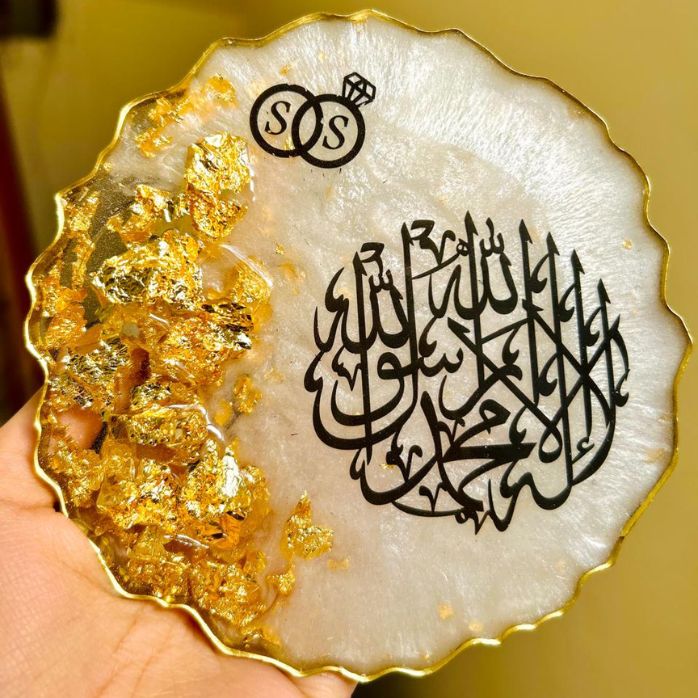 S S
لا إله إلا الله محمد رسول الله